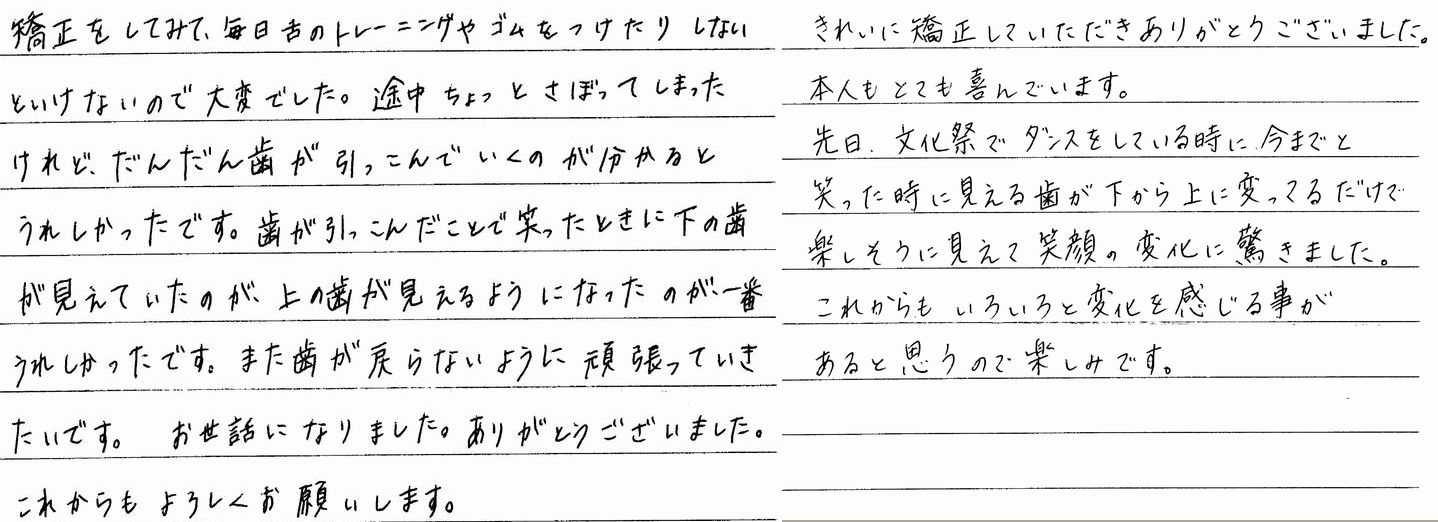 矯正をしてみて、毎日舌のトレーニングやゴムをつけたりしない
といけないので大変でした。途中ちょっとさぼってしまった
けれど、だんだん歯が引っこんでいくのが分かると
うれしかったです。歯が引っこんだことで笑ったときに下の歯
が見えていたのが、上の歯が見えるようになったのが、一番
うれしかったです。また歯が戻らないように頑張っていき
たいです。 お世話になりました。ありがとうございました。
これからもよろしくお願いします。
きれいに矯正していただきありがとうございました。
本人もとても喜んでいます。
先日、文化祭でダンスをしている時に、今までと
笑った時に見える歯が下から上に変ってるだけで
楽しそうに見えて笑顔の変化に驚きました。
これからもいろいろと変化を感じる事が
あると思うので楽しみです。